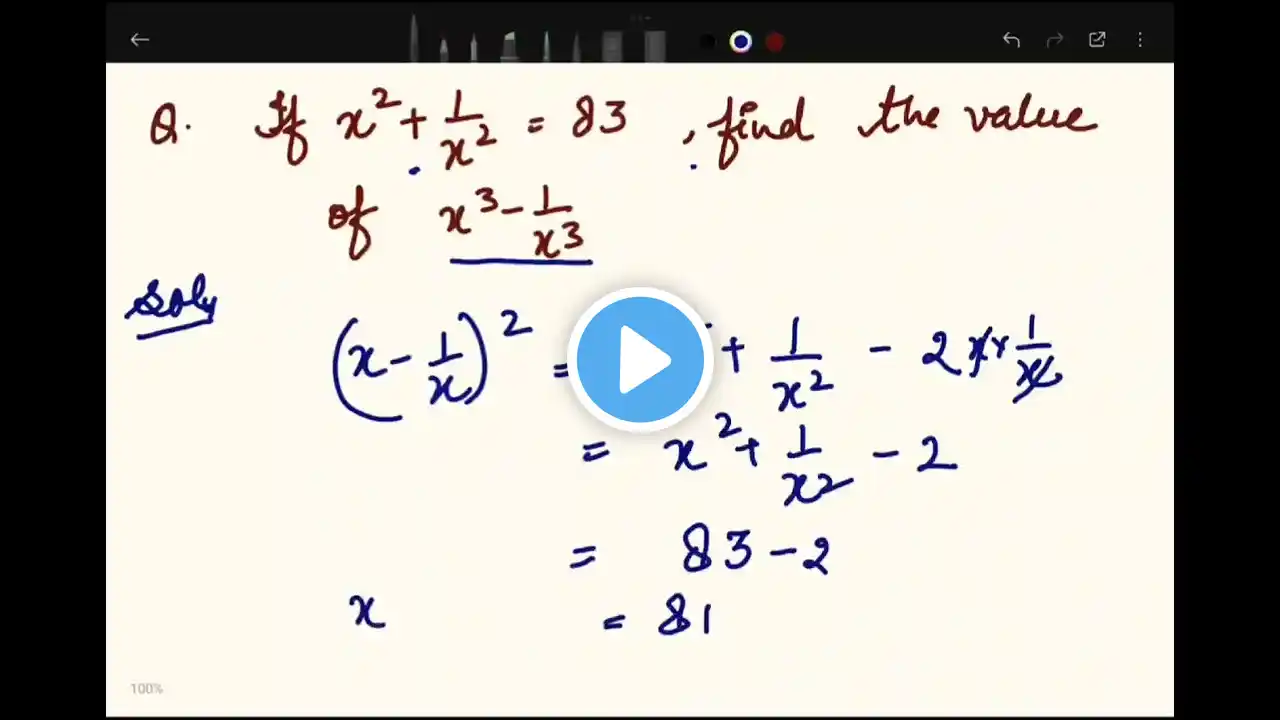 Q. If x² + 1/x² = 83, find the value
of x³ - 1/x³
Soln
(x - 1/x)² = + 1/x² - 2 x × 1/x
= x² + 1/x² - 2
= 83 - 2
x = 81
100%